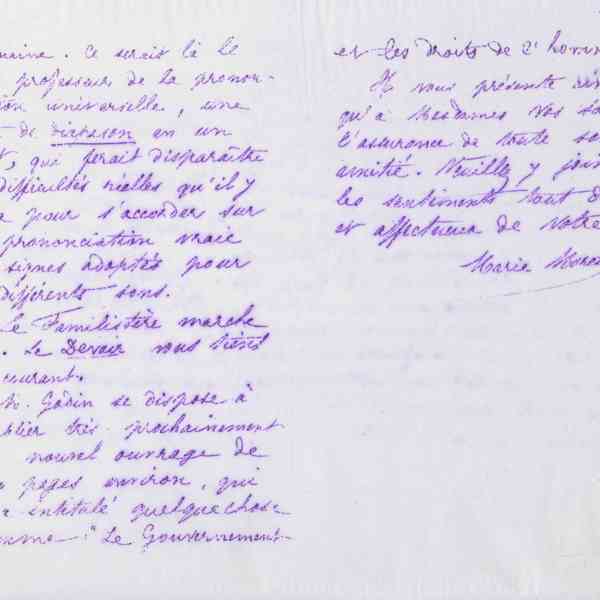 maine. Ce serait là le
professeur de la pronon-
tion universelle, une
de diapason en un
que ferait disparaître
difficultés réelles qu'il y
a pour s'accorder sur
prononciation vraie
signes adoptés pour
différents sons.
Le Familistère marche
. Le Devoir vous tient
courant.
M. Godin se dispose à
blier très prochainement
nouvel ouvrage de
pages environ, qui
a intitulé quelque chose
comme : "Le Gouvernement
et les droits de l'homm
Il vous présente
qu'à Mesdames vos
l'assurance de toute
amitié. Veuillez y join
les sentiments tout d
et affectueux de votre
Marie More